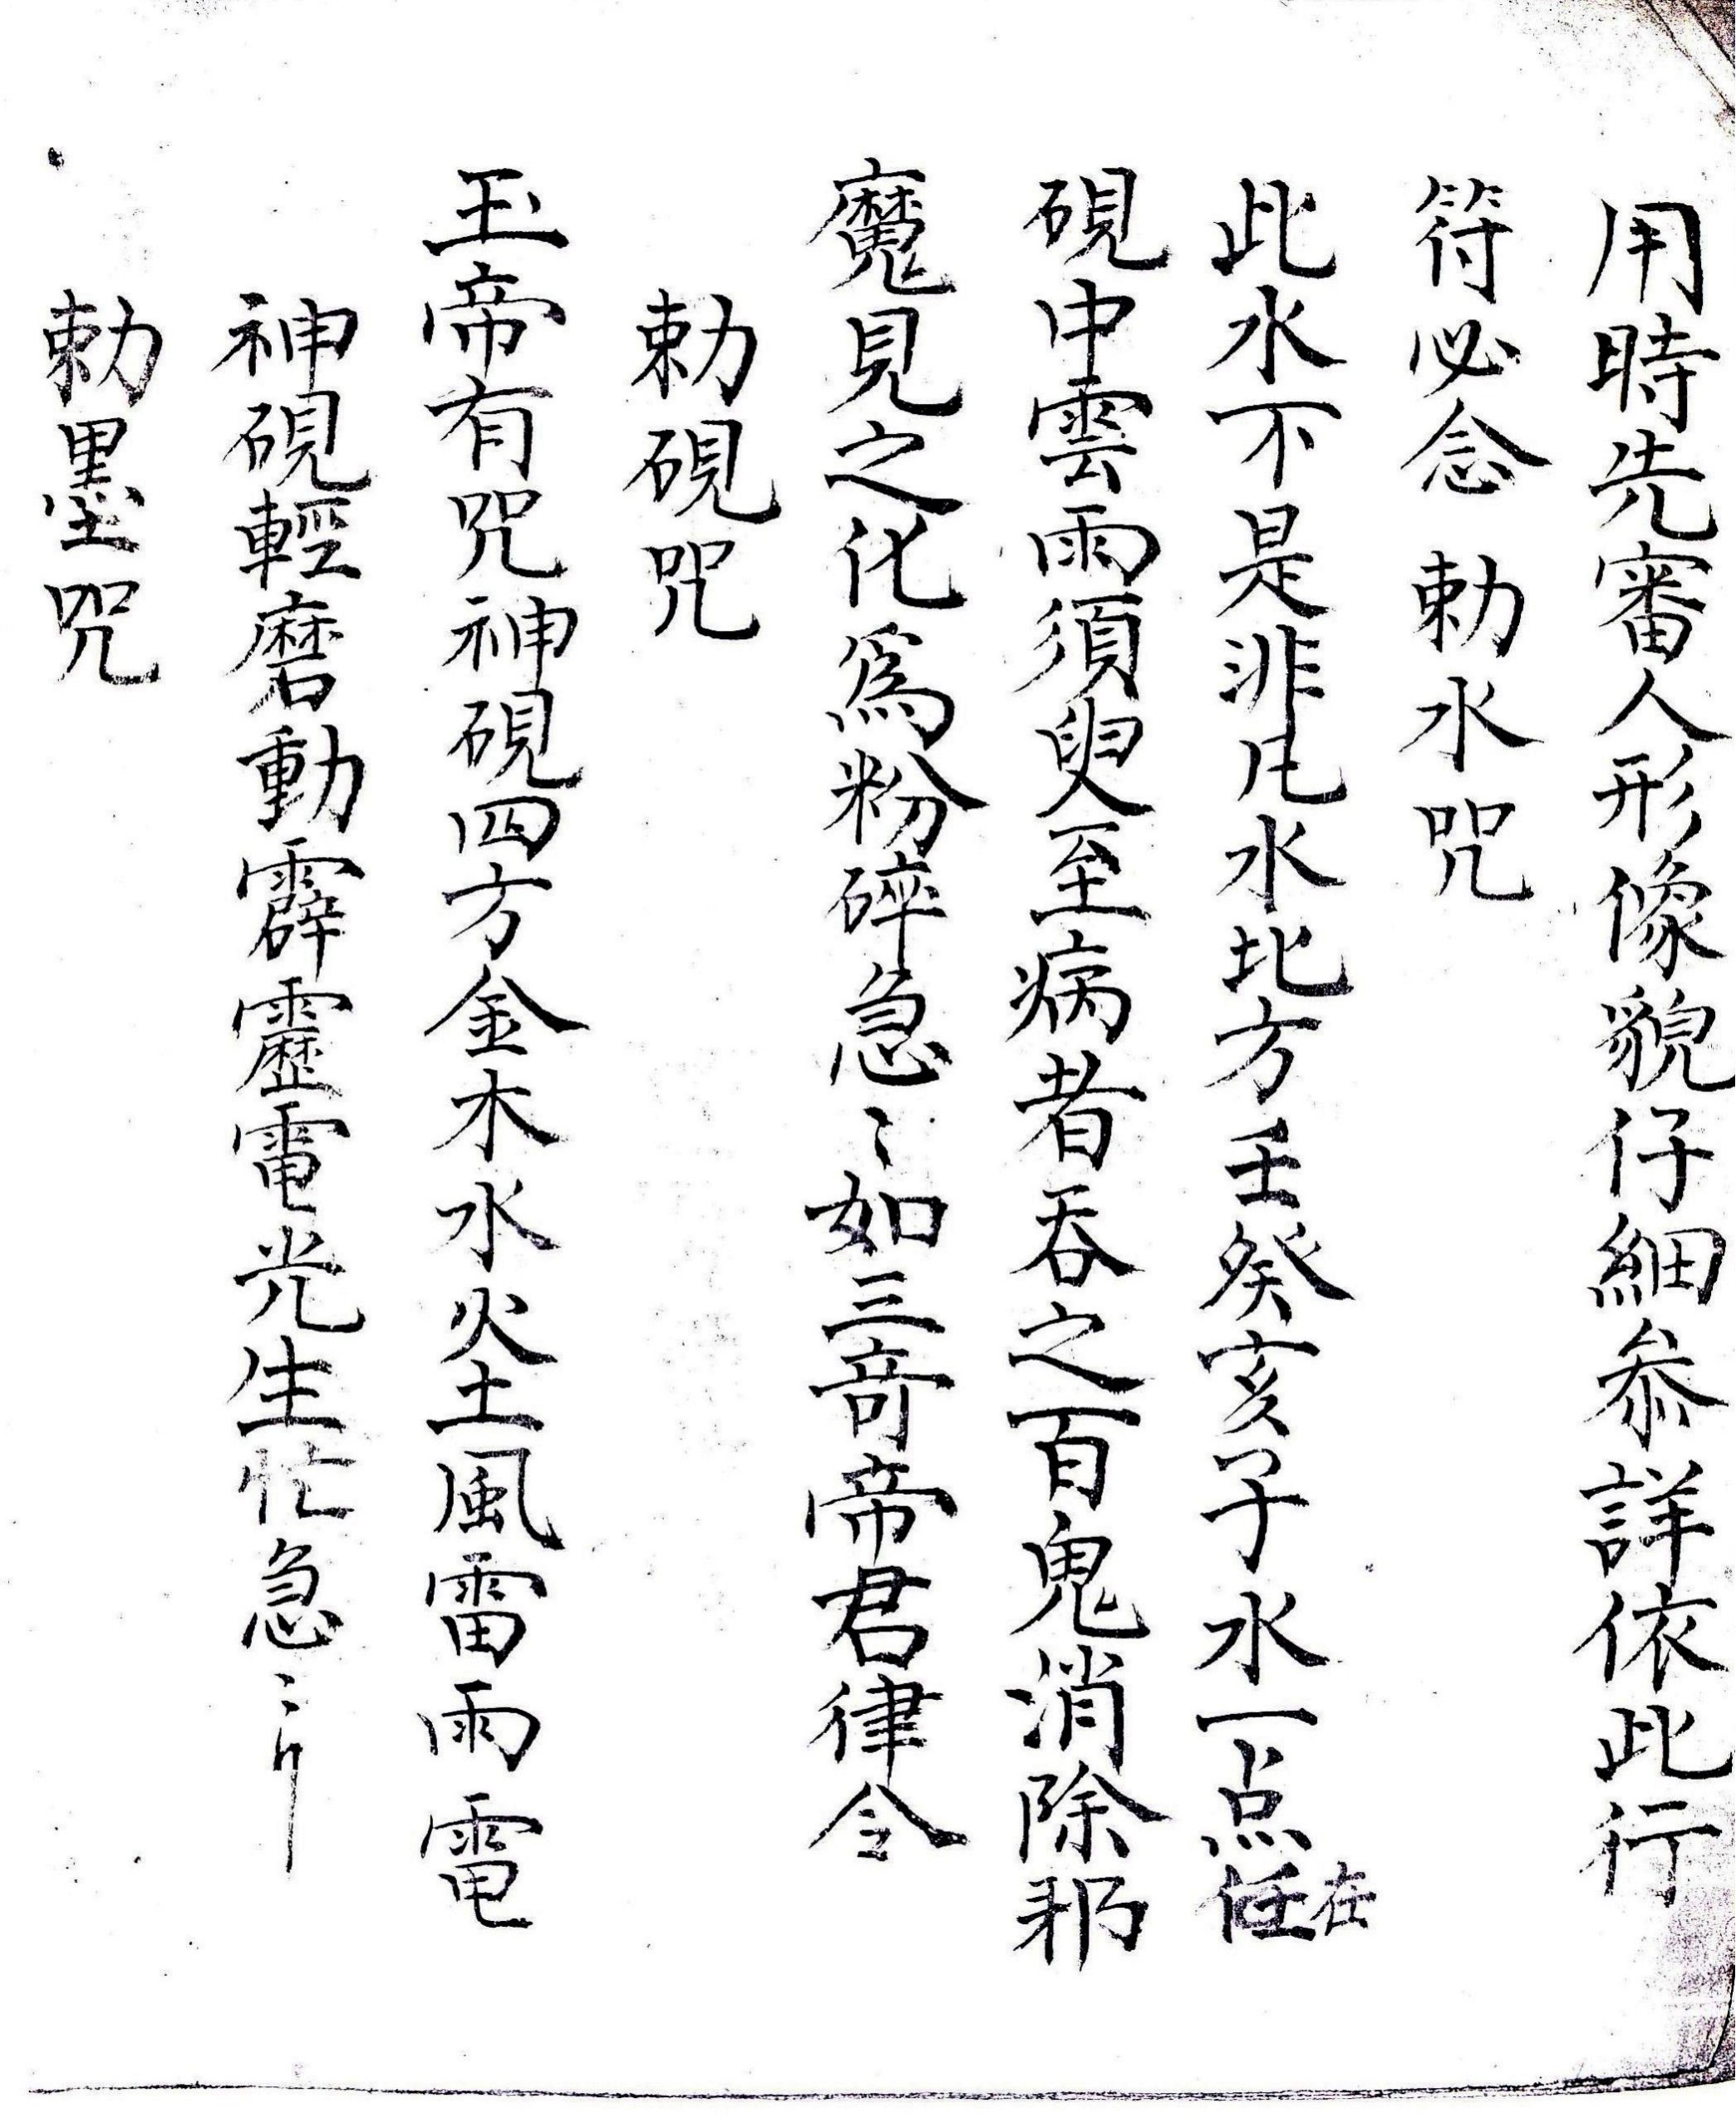 用時先審人形像貌仔細叅詳依此行
符必念　勅水咒
此水不是非凡水北方壬癸亥子水一点任在
硯中雲雨須臾至病者吞之百鬼消除邪
魔見之化為粉碎急〻如三竒帝君律令
勅硯咒
玉帝有咒神硯四方金木水火土風雷雨電
神硯輕磨動霹靂電光生忙急〻
勅墨咒